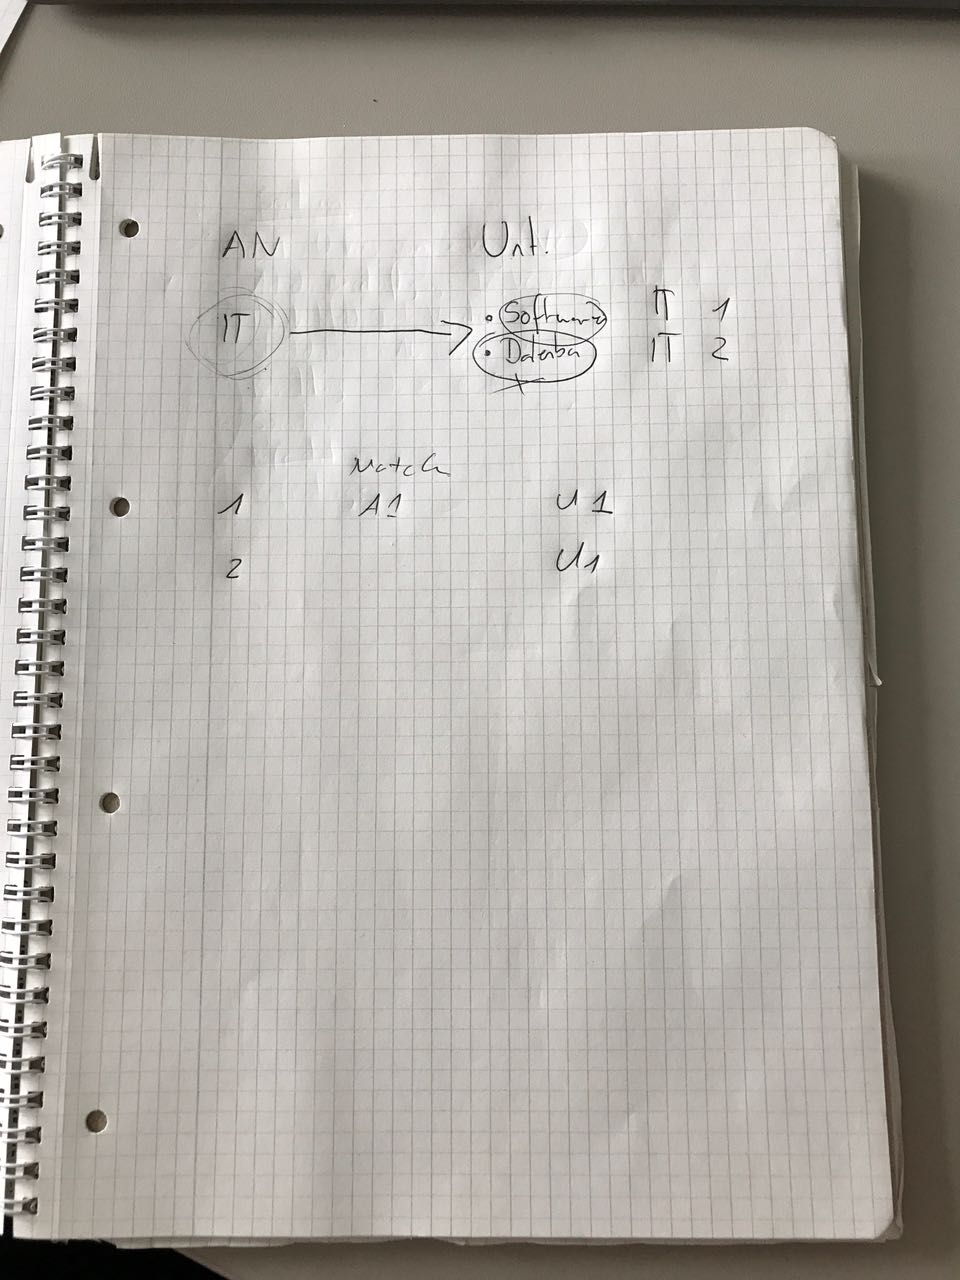 AN Unt.
IT • Software IT 1
• Datenba IT 2
Match
1 A1 U1
2 U1